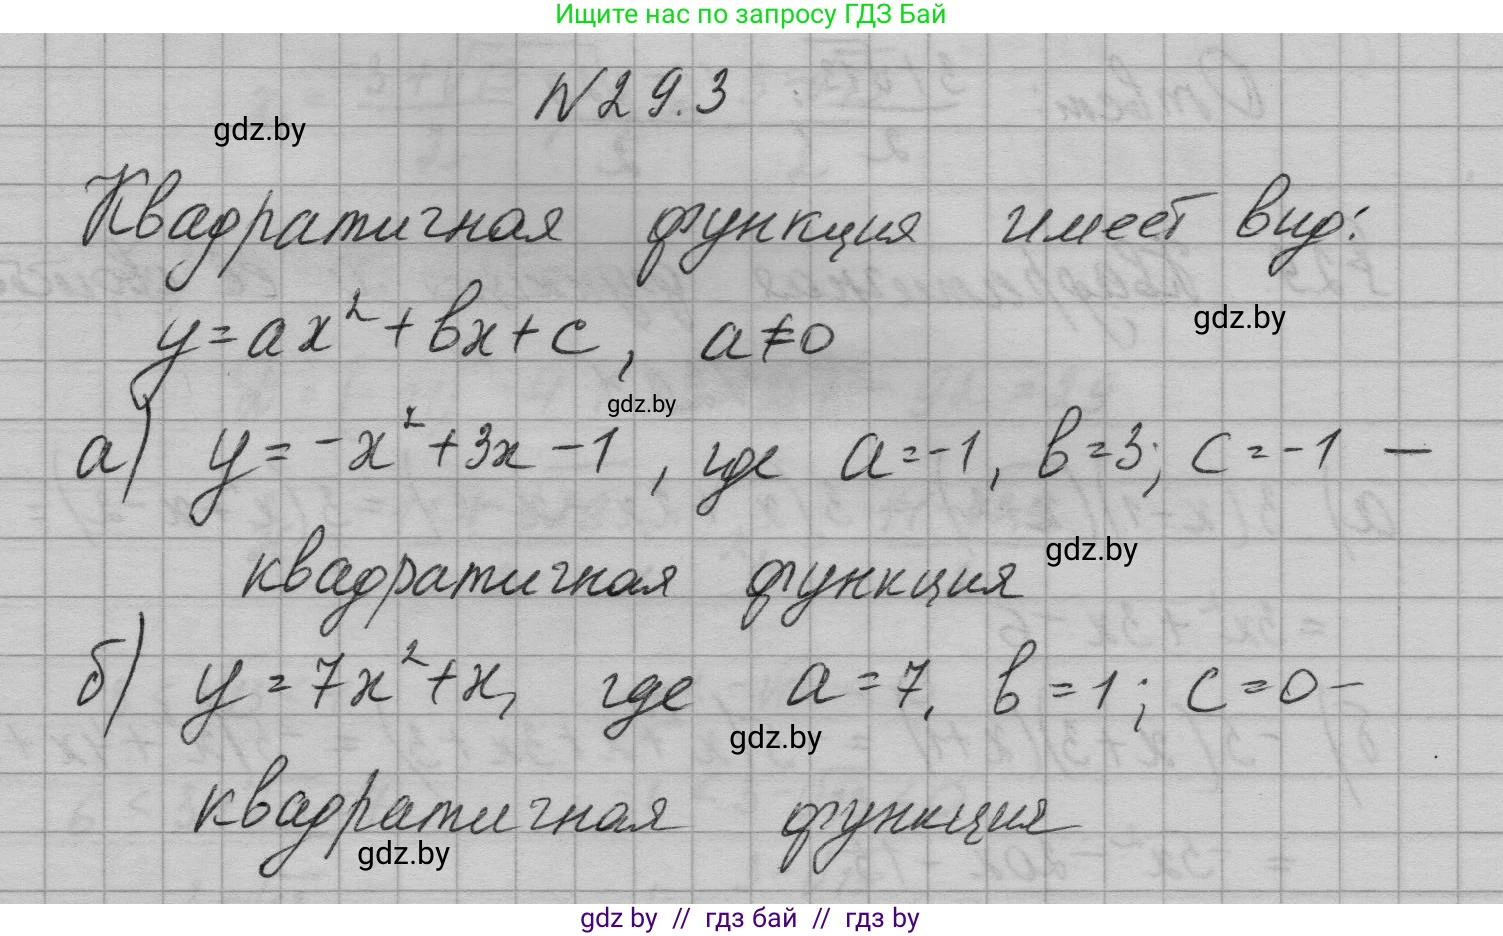 Ищите нас по запросу ГДЗ Бай
N 29.3
gdz.by
Квадратичная функция имеет вид:
gdz.by
y=ax²+вx+c, a≠0
gdz.by
а) y=-x²+3x-1, где a=-1, в=3; c=-1 —
квадратичная функция
gdz.by
б) y=7x²+x, где a=7, в=1; c=0-
gdz.by
квадратичная функция
gdz.by
gdz by // гдз бай // гдз by